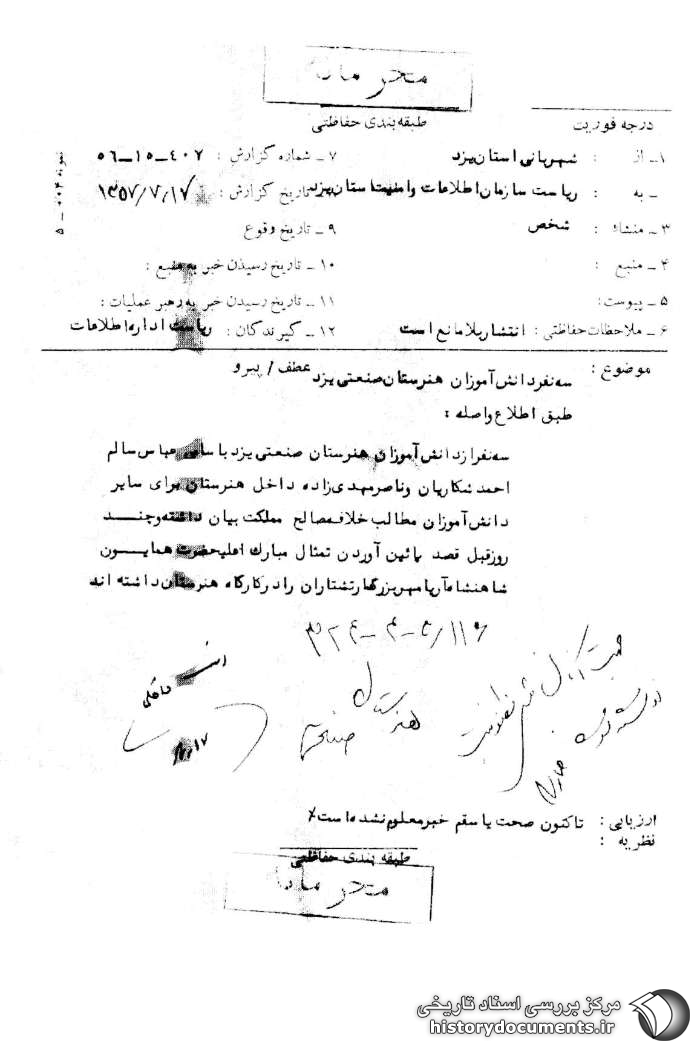 محرمانه
درجه فوریت
طبقه‌بندی حفاظتی
۱ـ از : شهربانی استان یزد
۷ ـ شماره گزارش : ۴۰۷ـ۱۵ـ۵۶
ـ به : ریاست سازمان اطلاعات وامنیت استان یزد
تاریخ گزارش : ۱۳۵۷/۷/۱۷
۳ـ منشاء : شخص
۹ ـ تاریخ وقوع
۴ـ منبع :
۱۰ ـ تاریخ رسیدن خبر به منبع :
۵ـ پیوست :
۱۱ ـ تاریخ رسیدن خبر به رهبر عملیات :
۶ ـ ملاحظات حفاظتی : انتشار بلامانع است
۱۲ ـ گیرندگان : ریاست اداره اطلاعات
موضوع : سه نفر دانش‌آموزان هنرستان صنعتی یزد عطف / پیرو
طبق اطلاع واصله :
سه نفر از دانش‌آموزان هنرستان صنعتی یزد با سامی عباس سالم
احمد شکاریان وناصر مهدی‌زاده داخل هنرستان برای سایر
دانش‌آموزان مطالب خلاف مصالح مملکت بیان داشته وچنــد
روز قبل قصد پائین آوردن تمثال مبارک اعلیحضرت همایــون
شاهنشاه آریامهر بزرگ ارتشتاران را در کارگاه هنرستان داشته اند
هنرستان
صنعتی
۷/۱۷
ارزیابی : تاکنون صحت یا سقم خبر معلوم نشده است٪
نظریه :
طبقه بندی حفاظتی
محرمانه
مرکز بررسی اسناد تاریخی
historydocuments.ir